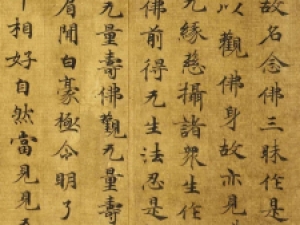 故名念佛三昧作是
以觀佛身故亦見
无緣慈攝諸眾生作
佛前得无生法忍是
无量壽佛觀无量壽
眉間白豪極令明了
相好自然當見見